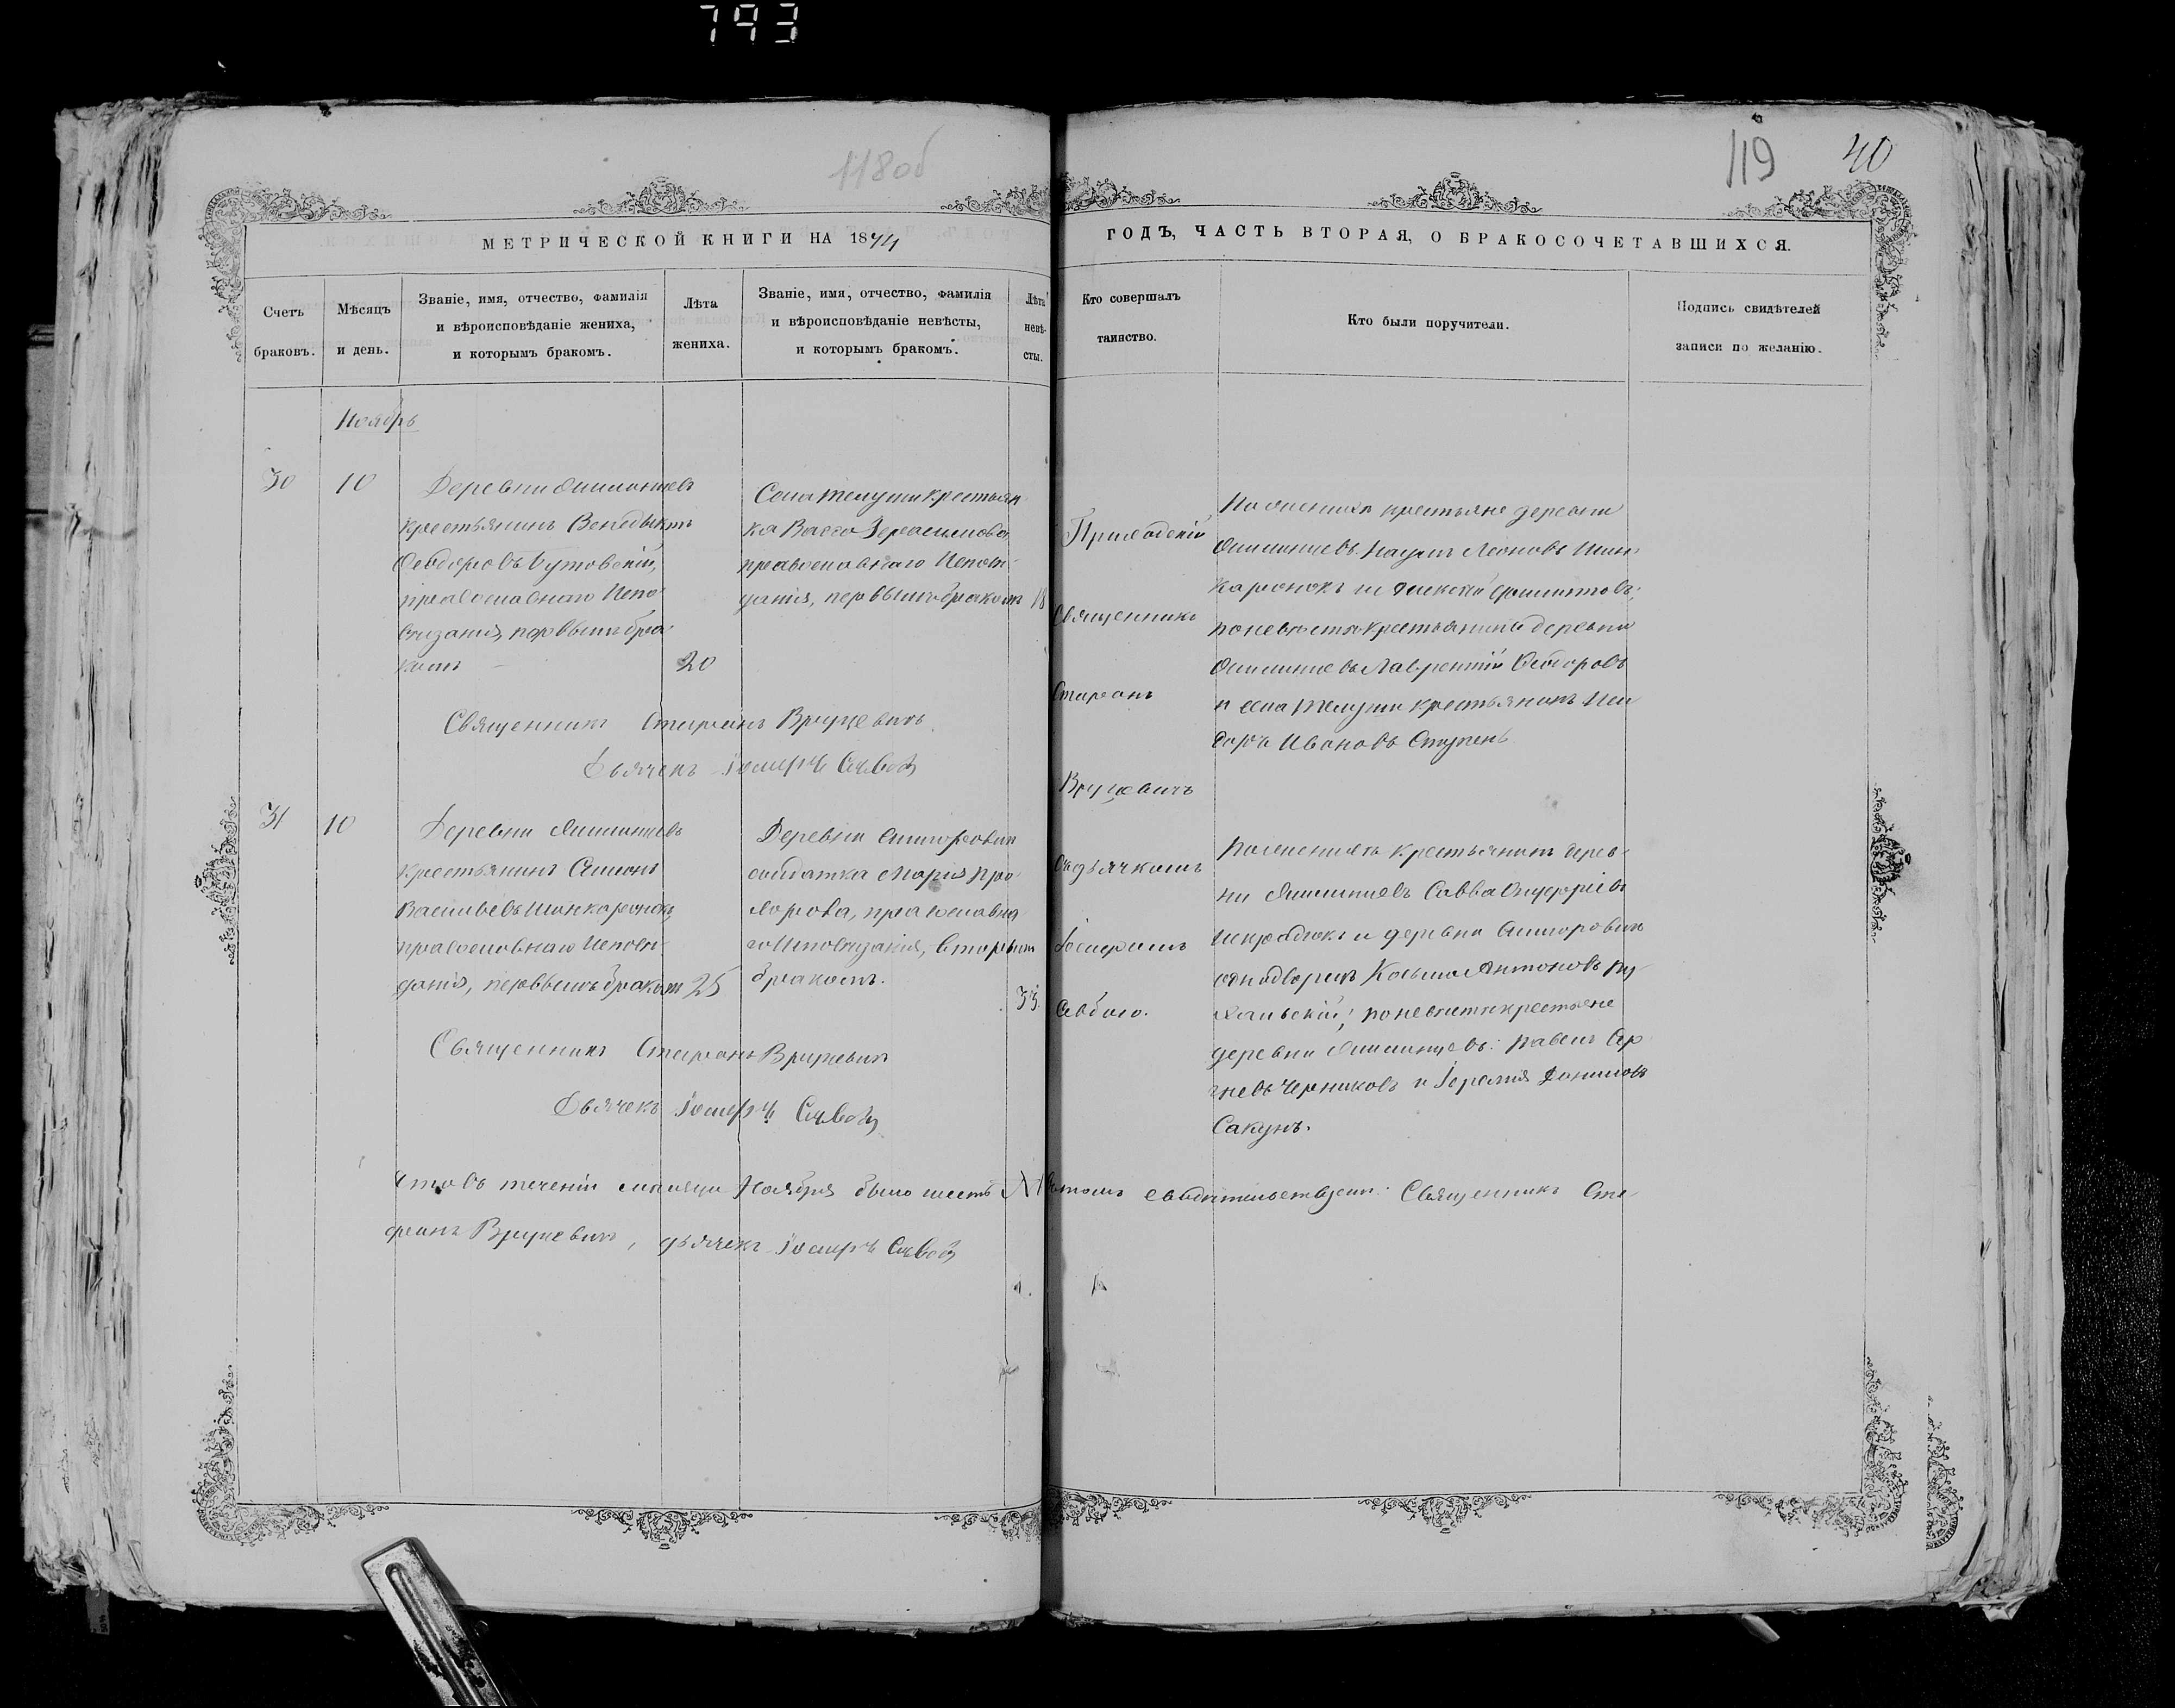 793
118об
119 40
МЕТРИЧЕСКОЙ КНИГИ НА 1874
ГОДЪ, ЧАСТЬ ВТОРАЯ, О БРАКОСОЧЕТАВШИХСЯ.
Счетъ браковъ.
Мѣсяцъ и день.
Званіе, имя, отчество, фамилія
и вѣроисповѣданіе жениха,
и которымъ бракомъ.
Лѣта жениха.
Званіе, имя, отчество, фамилія
и вѣроисповѣданіе невѣсты,
и которымъ бракомъ.
Лѣта невѣ-
сты.
Кто совершалъ
таинство.
Кто были поручители.
Подпись свидѣтелей
записи по желанію.
Ноябрь
30
10
Деревни
крестьянинъ Венедыктъ
Ѳеодоровъ Бутовскій,
православнаго Испо-
вѣданія, первымъ бра-
комъ
20
Села Телуши крестьян-
ка Васса Герасимова,
православнаго Исповѣ-
данія, первымъ бракомъ
18
Приходскій
Священникъ
Стефанъ
Вруцевичъ
съ дьячкомъ
Іосифомъ
По женихѣ крестьяне деревни
Наумъ Леоновъ Шин-
каренокъ и
по невѣстѣ крестьянинъ деревни
Лаврентій Ѳедоровъ
и села Телуши крестьянинъ Иси-
доръ Ивановъ Ступень
Священникъ Стефанъ Вруцевичъ.
Дьячекъ Іосифъ
31
10
Деревни
крестьянинъ Симонъ
Васильевъ Шинкаренокъ,
православнаго Исповѣ-
данія, первымъ бракомъ
25
Деревни
солдатка Марія Про-
хорова, православна-
го Исповѣданія, вторымъ
бракомъ.
33.
По женихѣ крестьянинъ дерев-
ни Савва Онуфріевъ
и деревни
однодворецъ Козьма Антоновъ Ру-
; по невѣстѣ крестьяне
деревни : Павелъ
Черниковъ и Іеремія Даниловъ
Сакунъ.
Священникъ Стефанъ Вруцевичъ
Дьячекъ Іосифъ
Что въ теченіи мѣсяца Ноября было шесть
въ томъ свидѣтельствуемъ: Священникъ Сте-
фанъ Вруцевичъ, дьячекъ Іосифъ